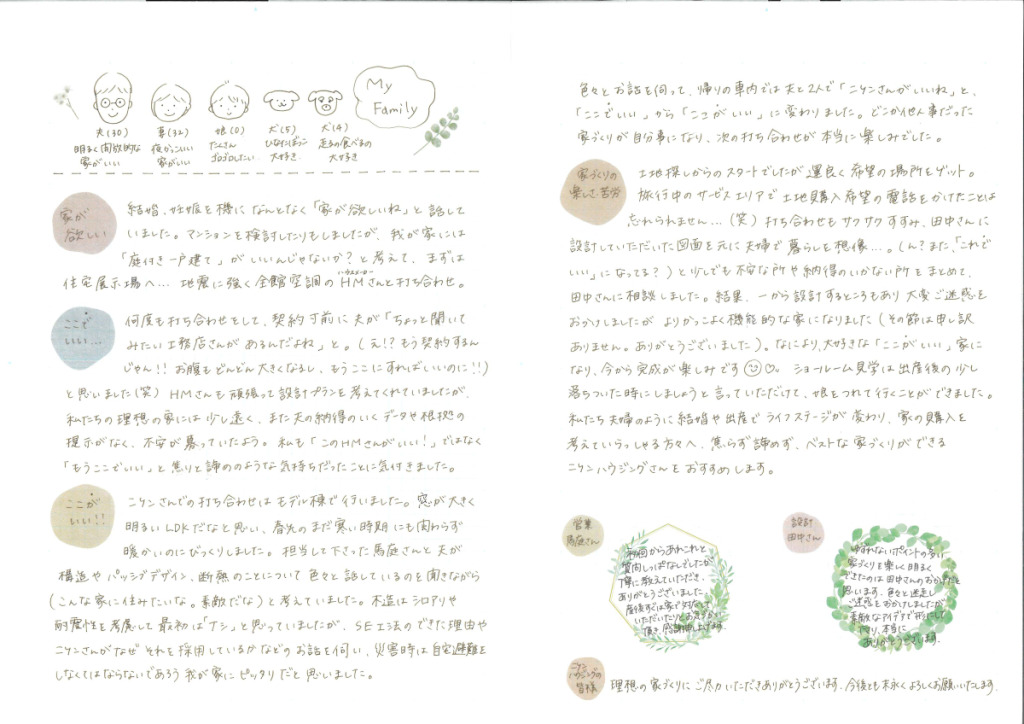 My
Family
夫(30)
明るく開放的な
家がいい
妻(32)
夜かっこいい
家がいい
娘(0)
たくさん
ゴロゴロしたい
犬(5)
ひなたぼっこ
大好き
犬(4)
走る食べるの
大好き
家が
欲しい
結婚、妊娠を機になんとなく「家が欲しいね」と話して
いました。マンションを検討したりもしましたが、我が家には
「庭付き一戸建て」がいいんじゃないか?と考えて、まずは
住宅展示場へ… 地震に強く全館空調のHMさんと打ち合わせ。
ハウスメーカー
ここで
いい…
何度も打ち合わせをして、契約寸前に夫が「ちょっと聞いて
みたい工務店さんがあるんだよね」と。(え!?もう契約するん
じゃん!!お腹もどんどん大きくなるし、もうここにすればいいのに!!)
と思いました(笑) HMさんも頑張って設計プランを考えてくれていましたが、
私たちの理想の家には少し遠く、また夫の納得のいくデータや根拠の
提示がなく、不安が募っていたよう。私も「このHMさんがいい!」ではなく
「もうここでいい」と焦りと諦めのような気持ちだったことに気付きました。
ここが
いい!!
ニケンさんでの打ち合わせはモデル棟で行いました。窓が大きく
明るいLDKだなと思い、春先のまだ寒い時期にも関わらず
暖かいのにびっくりしました。担当して下さった馬庭さんと夫が
構造やパッシブデザイン、断熱のことについて色々と話しているのを聞きながら
(こんな家に住みたいな。素敵だな)と考えていました。木造はシロアリや
耐震性を考慮して最初は「ナシ」と思っていましたが、SE工法のできた理由や
ニケンさんがなぜそれを採用しているかなどのお話を伺い、災害時は自宅避難を
しなくてはならないであろう我が家にピッタリだと思いました。
色々とお話を伺って、帰りの車内では夫と2人で「ニケンさんがいいね」と、
「ここでいい」から「ここがいい」に変わりました。どこか他人事だった
家づくりが自分事になり、次の打ち合わせが本当に楽しみでした。
家づくりの
楽しさ・苦労
土地探しからのスタートでしたが運良く希望の場所をゲット。
旅行中のサービスエリアで土地購入希望の電話をかけたことは
忘れられません…(笑)打ち合わせもサクサクすすみ、田中さんに
設計していただいた図面を元に夫婦で暮らしを想像…。(ん?また、「これで
いい」になってる?)と少しでも不安な所や納得のいかない所をまとめて、
田中さんに相談しました。結果、一から設計するところもあり大変ご迷惑を
おかけしましたがよりかっこよく機能的な家になりました(その節は申し訳
ありません。ありがとうございました)。なにより、大好きな「ここがいい」家に
なり、今から完成が楽しみです♡。ショールーム見学は出産後の少し
落ちついた時にしましょうと言っていただけて、娘をつれて行くことができました。
私たち夫婦のように結婚や出産でライフステージが変わり、家の購入を
考えていらっしゃる方々へ、焦らず諦めず、ベストな家づくりができる
ニケンハウジングさんをおすすめします。
営業
馬庭さん
初回からあれこれと
質問しっぱなしでしたが
丁寧に教えていただき、
ありがとうございました。
産後すぐは家で対応して
いただいたりとお気づかい
頂き、感謝申し上げます。
設計
田中さん
ゆずれないポイントの多い
家づくりを楽しく明るく
できたのは田中さんのおかげだと
思います。色々と迷走し
ご迷惑をおかけしましたが
素敵なアイデアで形にして
下さり、本当に
ありがとうございます。
ニケン
ハウジングの
皆様
理想の家づくりにご尽力いただきありがとうございます。今後とも末永くよろしくお願いいたします。